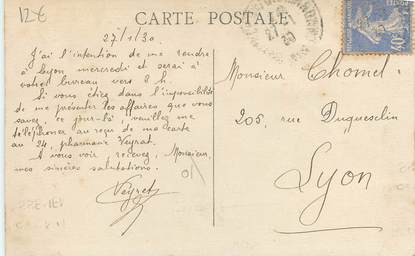 12€
CARTE POSTALE
27/1/30.
J'ai l'intention de me rendre
à Lyon mercredi et serai à
votre bureau vers 2 h.
Si vous étiez dans l'impossibilité
de me présenter les affaires que vous
savez, ce jour-là, veuillez me
téléphoner au reçu de ma carte
au 24, pharmacie Veyrat.
A vous voir recevez, Monsieur
mes sincères salutations.
Veyrat
Monsieur Chomel
205, rue Duguesclin
Lyon